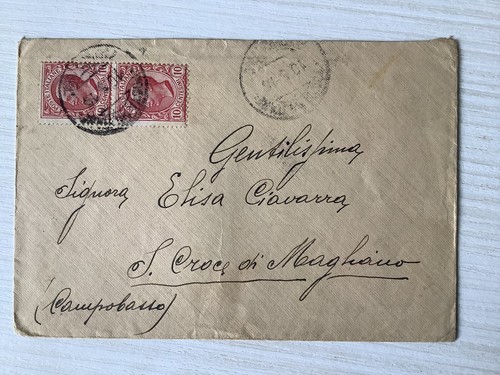 10 10
Gentilissima
Signora Elisa Ciavarra
S. Croce di Magliano
(Campobasso)